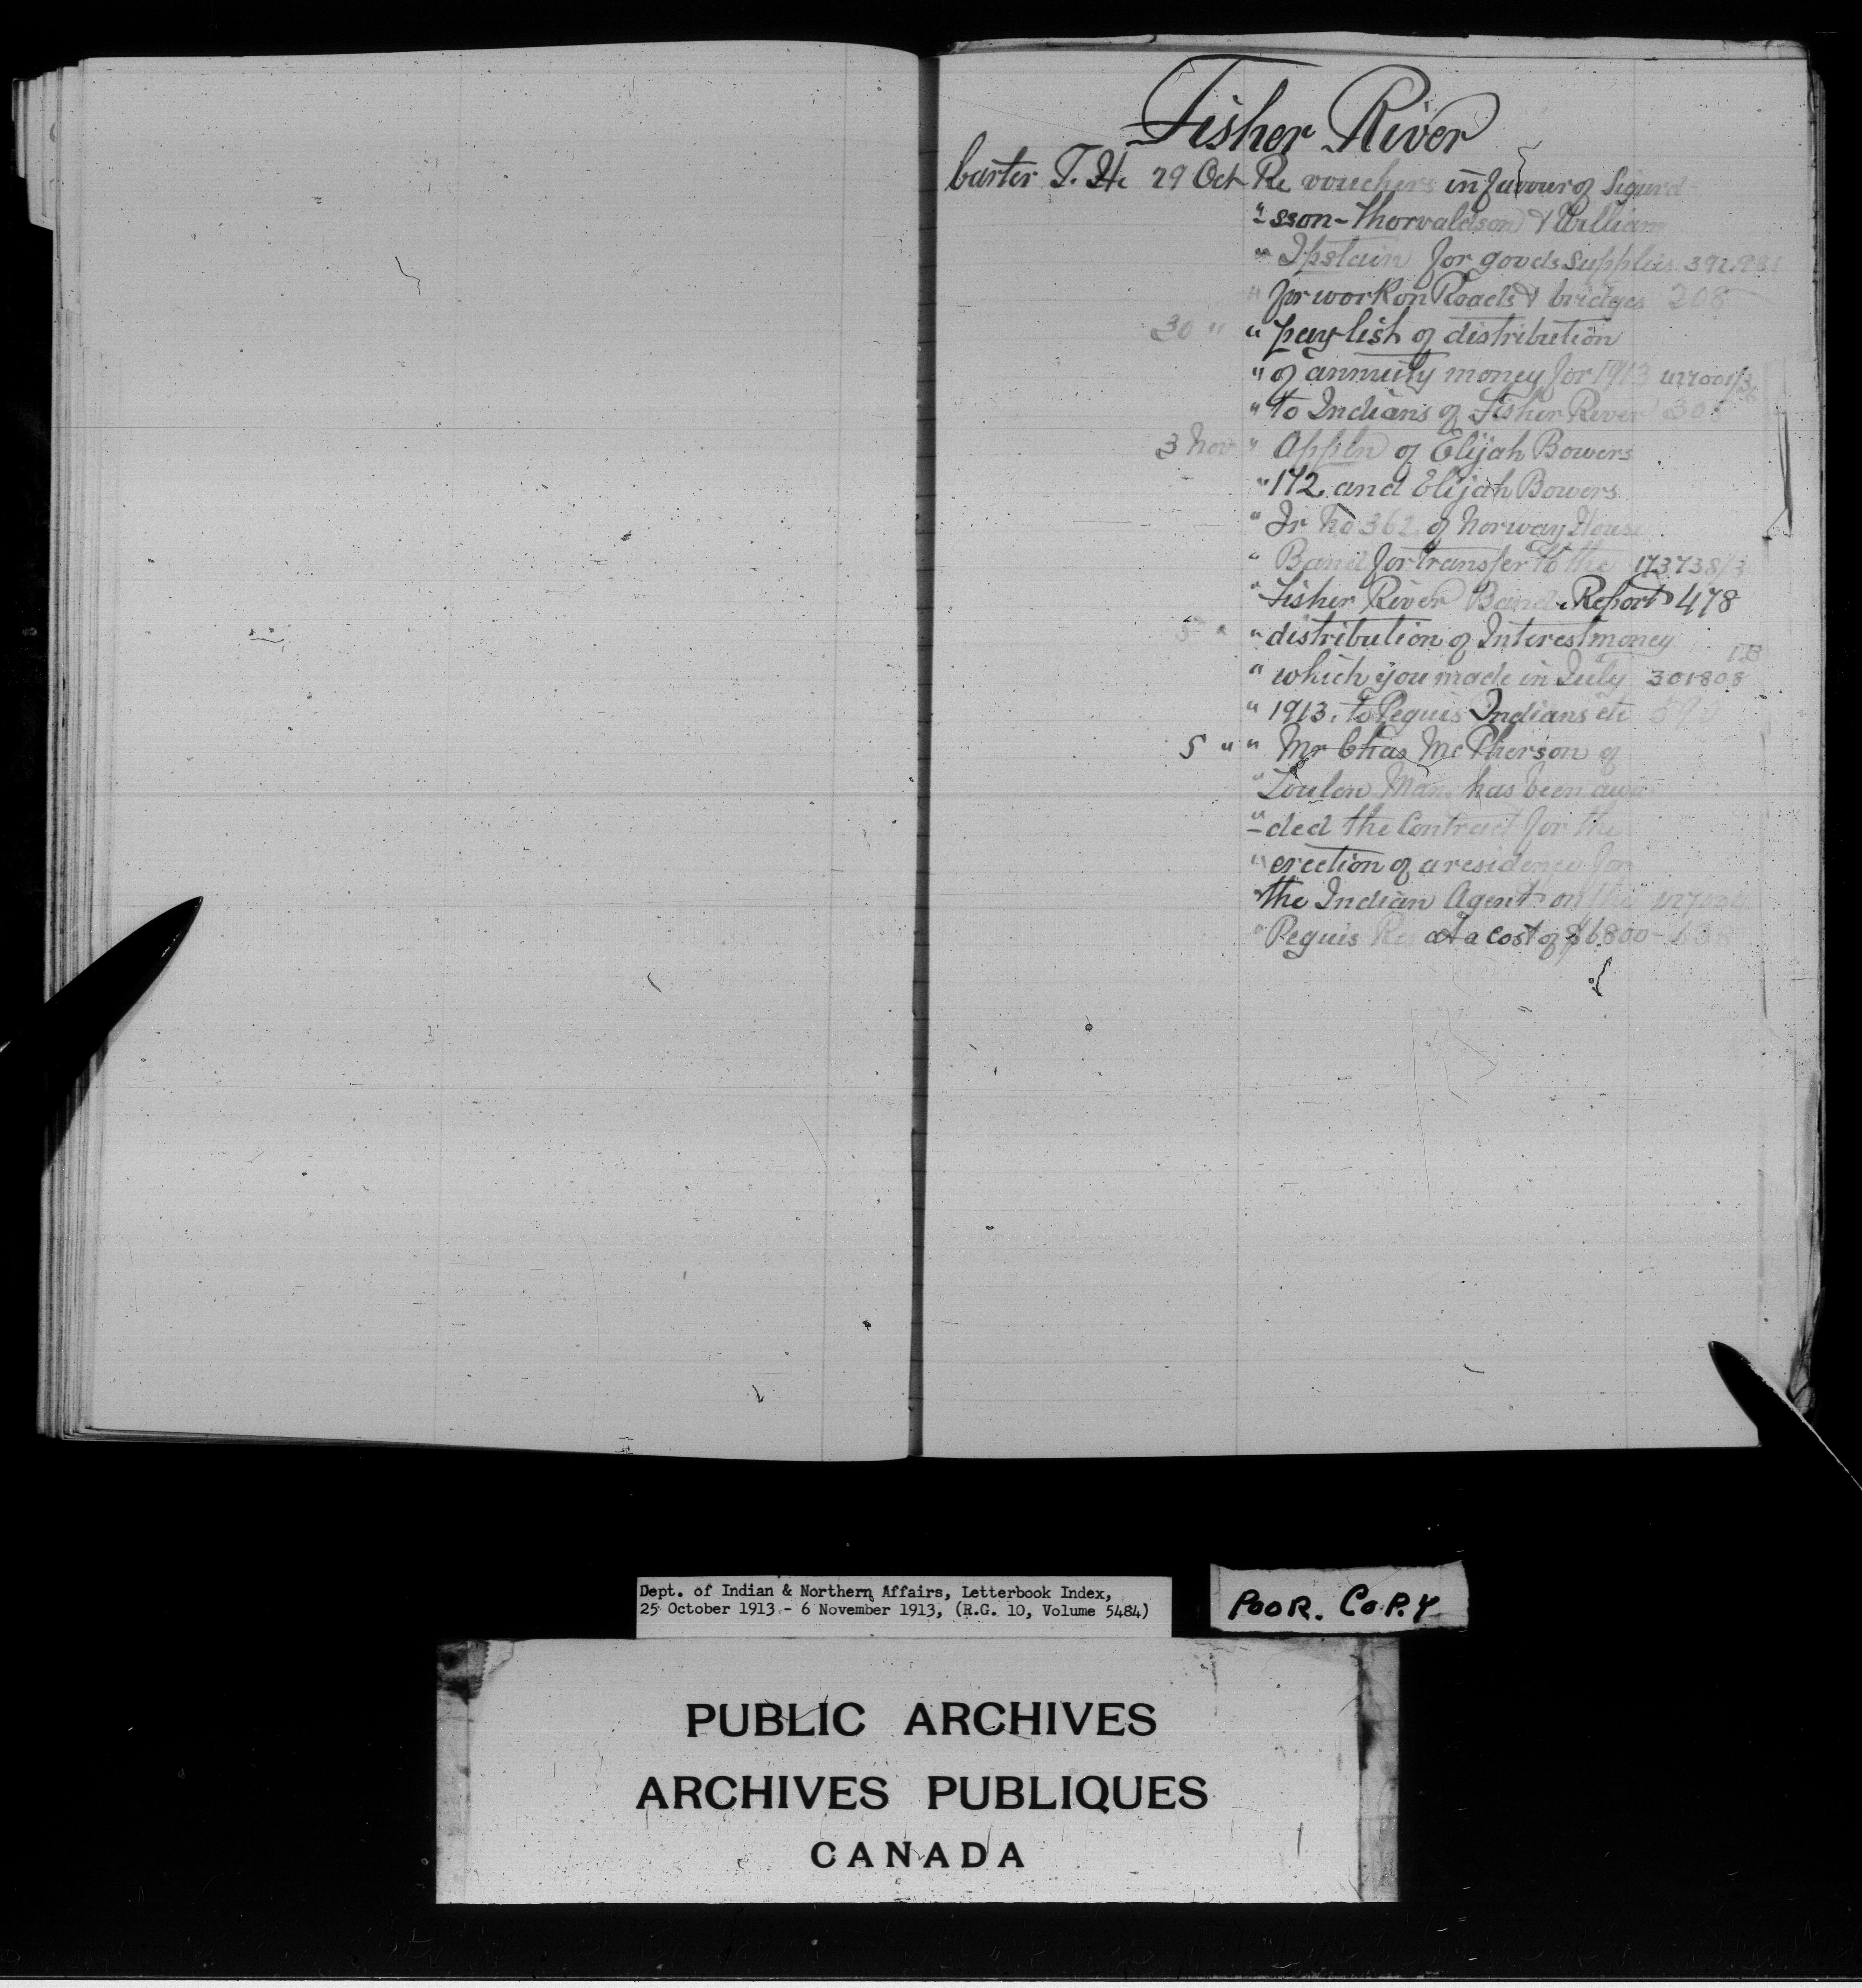 Fisher River
Carter T. H. 29 Oct Re vouchers in favour of Sigurd-
" -sson-Thorvaldson & William
" for goods supplies 392.981
" for work on Roads & bridges 208
30 " " pay-list of distribution
" of annuity money for 1913 427001/3
" to Indians of Fisher River 308
3 Nov " Appln of Elijah Bowers
" 172 and Elijah Bowers
" Jr No 362 of Norway House
" Band for transfer to the 173738/3
" Fisher River Band. Report 478
5 " " distribution of Interest money
" which you made in July 301808
" 1913, to Peguis Indians etc 590
5 " " Mr Chas McPherson of
" Man. has been awar
" -ded the Contract for the
" erection of a residence for
" the Indian Agent on the
" Peguis Res at a cost of $6800- 638
Dept. of Indian & Northern Affairs, Letterbook Index,
25 October 1913 - 6 November 1913, (R.G. 10, Volume 5484)
POOR. COPY
PUBLIC ARCHIVES
ARCHIVES PUBLIQUES
CANADA